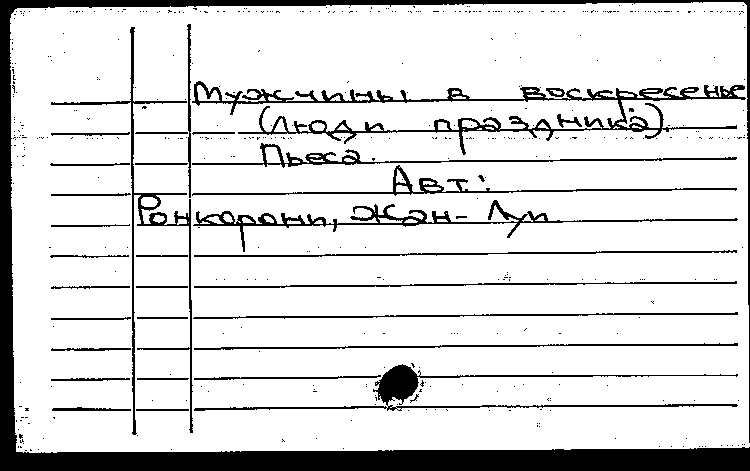 Мужчины в воскресенье
(люди праздника).
Пьеса.
Авт.:
Ронкорони, Жан-Луи